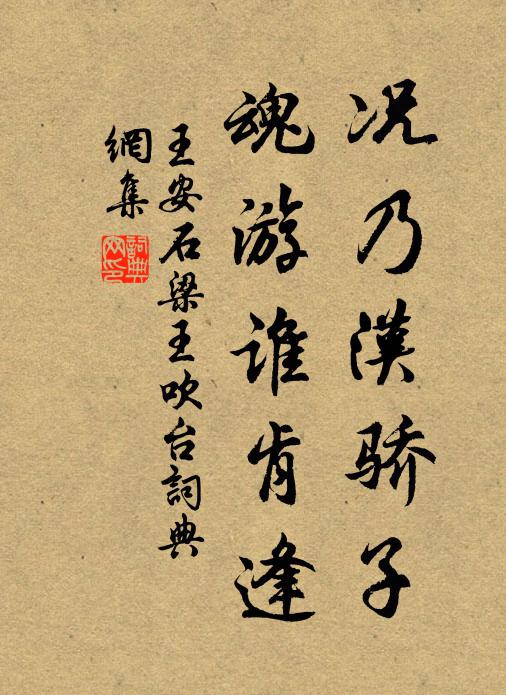 况乃漢骄子
魂游谁肯逢
王安石梁王吹台詞典
網集
詞典
网印